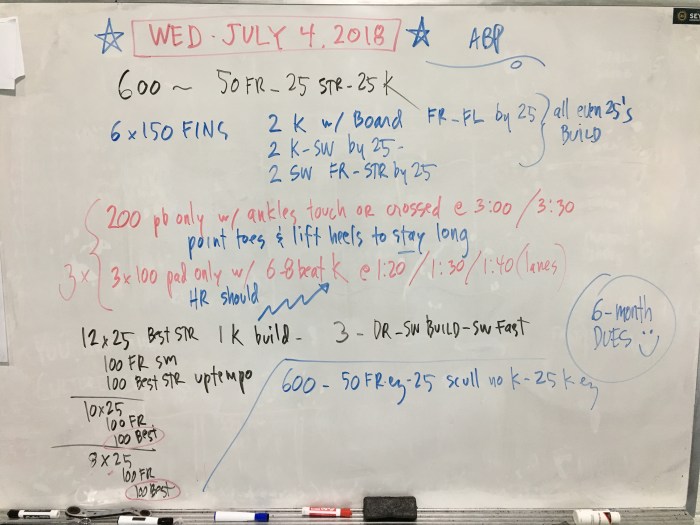 WED. JULY 4, 2018
ABP
600 ~ 50 FR - 25 STR - 25 K
6 x 150 FINS
2 K w/ Board FR-FL by 25
2 K-SW by 25-
2 SW FR-STR by 25
all even 25's
BUILD
3x
200 pb only w/ ankles touch or crossed @ 3:00 / 3:30
point toes & lift heels to stay long
3x100 pad only w/ 6-8 beat K @ 1:20 / 1:30 / 1:40 (lanes)
HR should
6-month
DUES
12x25 Best STR 1 K build - 3 - DR-SW BUILD-SW Fast
100 FR sm
100 Best STR uptempo
10x25
100 FR
100 Best
8x25
100 FR
100 Best
600 - 50 FR ez - 25 scull no K - 25 K ez